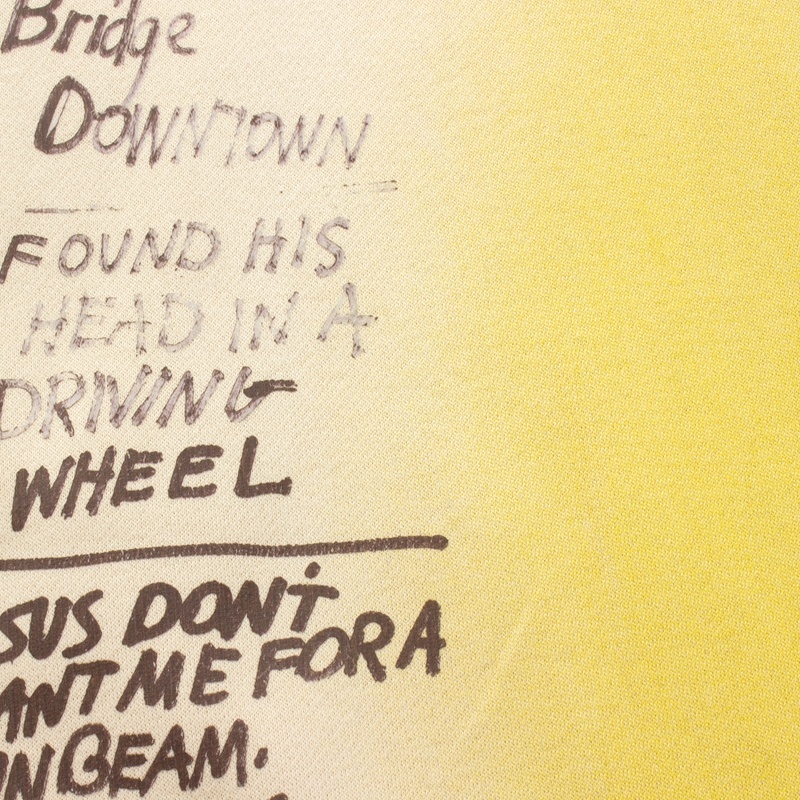 Bridge
DOWNTOWN
FOUND HIS
HEAD IN A
DRIVING
WHEEL
SUS DON'T
ANT ME FOR A
NBEAM.